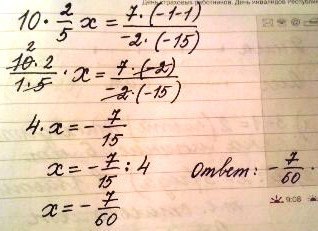 День страховых работников. День инвалидов Республики
10 · 2/5 x = 7·(-1-1)/-2·(-15)
2
10·2/1·5 · x = 7·(-2)/-2·(-15)
4·x = - 7/15
x = - 7/15 : 4 Ответ: - 7/60 .
x = - 7/60
9:08